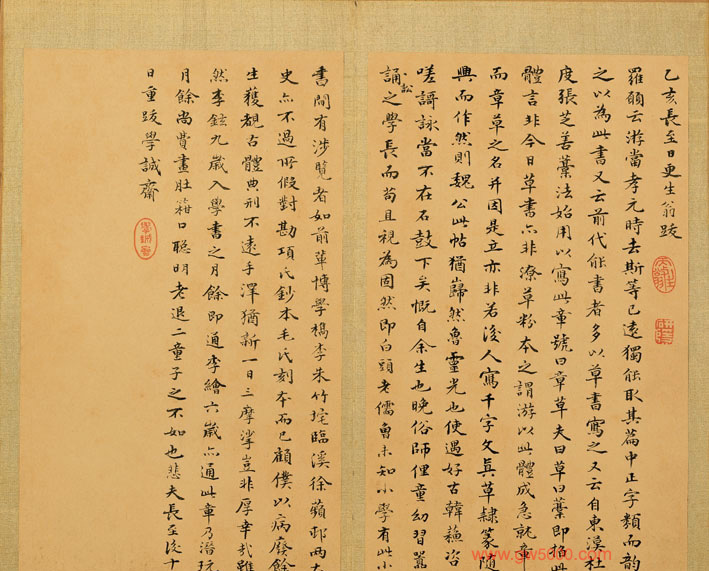 乙亥長至日更生翁跋
羅願云游當孝元時去斯等已遠獨能取其篇中正字類而韵
之以為此書又云前代能書者多以草書寫之又云自東漢杜
度張芝善藁法始用以寫此章號曰章草夫曰草曰藁即
體言非今日草書亦非潦草粉本之謂游以此體成急就章
而章草之名并因是立亦非若後人寫千字文真草隸篆隨
興而作然則魏公此帖猶巋然魯靈光也使遇好古韓蘇咨
嗟謌詠當不在石鼓下矣慨自余生也晚俗師俚童幼習
訟
誦之學長而苟且視為固然即白頭老儒曾未知小學有此小
書間有涉覽者如前輩博學槜李朱竹垞臨溪徐蘋邨兩太
史亦不過假對勘項氏鈔本毛氏刻本而已顧僕以病廢餘
生獲覩古體典刑不遠手澤猶新一日三摩挲豈非厚幸哉雖
然李鉉九歲入學書之月餘即通李繪六歲亦通此章乃潛玩
月餘尚費畫肚箝口聰明老退二童子之不如也悲夫長至後十
日重跋學誠齋
學誠齋
www.gw5000.com